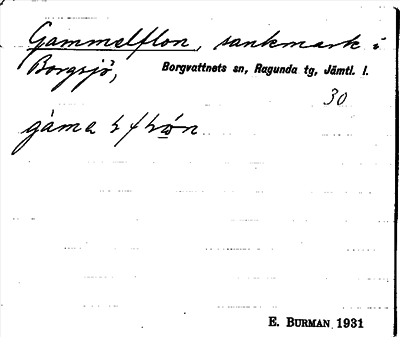 Gammelflon, sankmark i
Borgsjö, Borgvattnets sn, Ragunda tg, Jämtl. l.
30
E. BURMAN 1931